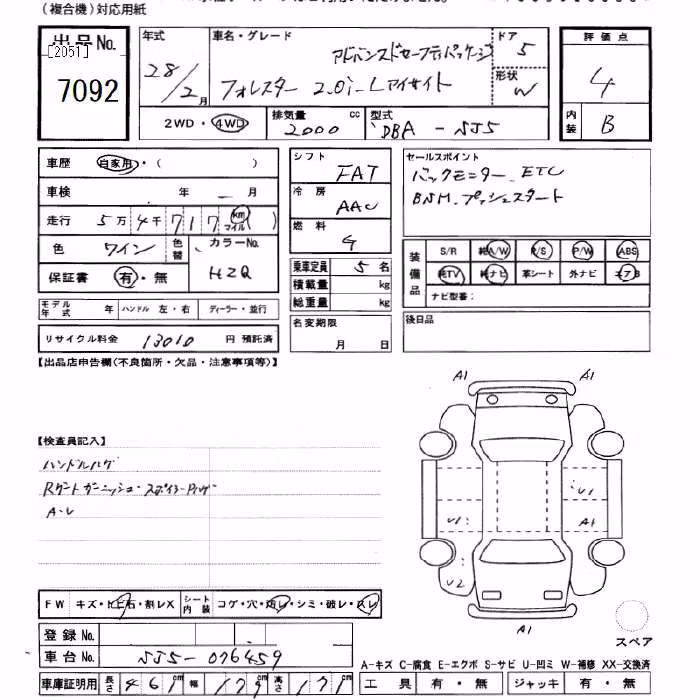 (複合機)対応用紙
出品No.
[2051]
7092
年式
28/2月
車名・グレード
アドバンスドセーフティパッケージ
フォレスター 2.0i-Lアイサイト
ドア
5
形状
W
評価点
4
内装
B
2WD・4WD
排気量
2000 cc
型式
DBA - SJ5
車歴 自家用・( )
車検 年 月
走行 5万4千717 km マイル ( )
色 ワイン 色替 カラーNo. HZQ
保証書 有・無
モデル年式 年 ハンドル 左・右 ディーラー・並行
リサイクル料金 13010 円 預託済
シフト FAT
冷房 AAC
燃料 G
乗車定員 5 名
積載量 kg
総重量 kg
名変期限
月 日
セールスポイント
バックモニター ETC
BSM プッシュスタート
装備品
S/R 純A/W P/S P/W ABS
純TV 純ナビ 革シート 外ナビ エアB
ナビ型番:
後日品
【出品店申告欄(不良箇所・欠品・注意事項等)】
【検査員記入】
ハンドルハゲ
A-U
A1 A1
U1
U1 A1
U2
A1
スペア
FW キズ・トビ石・割レX シート内装 コゲ・穴・汚レ・シミ・破レ・スレ
登録No.
車台No. SJ5-076459
車庫証明用 長さ 461cm 幅 179cm 高さ 171
A-キズ C-腐食 E-エクボ S-サビ U-凹ミ W-補修 XX-交換済
工具 有・無 ジャッキ 有・無